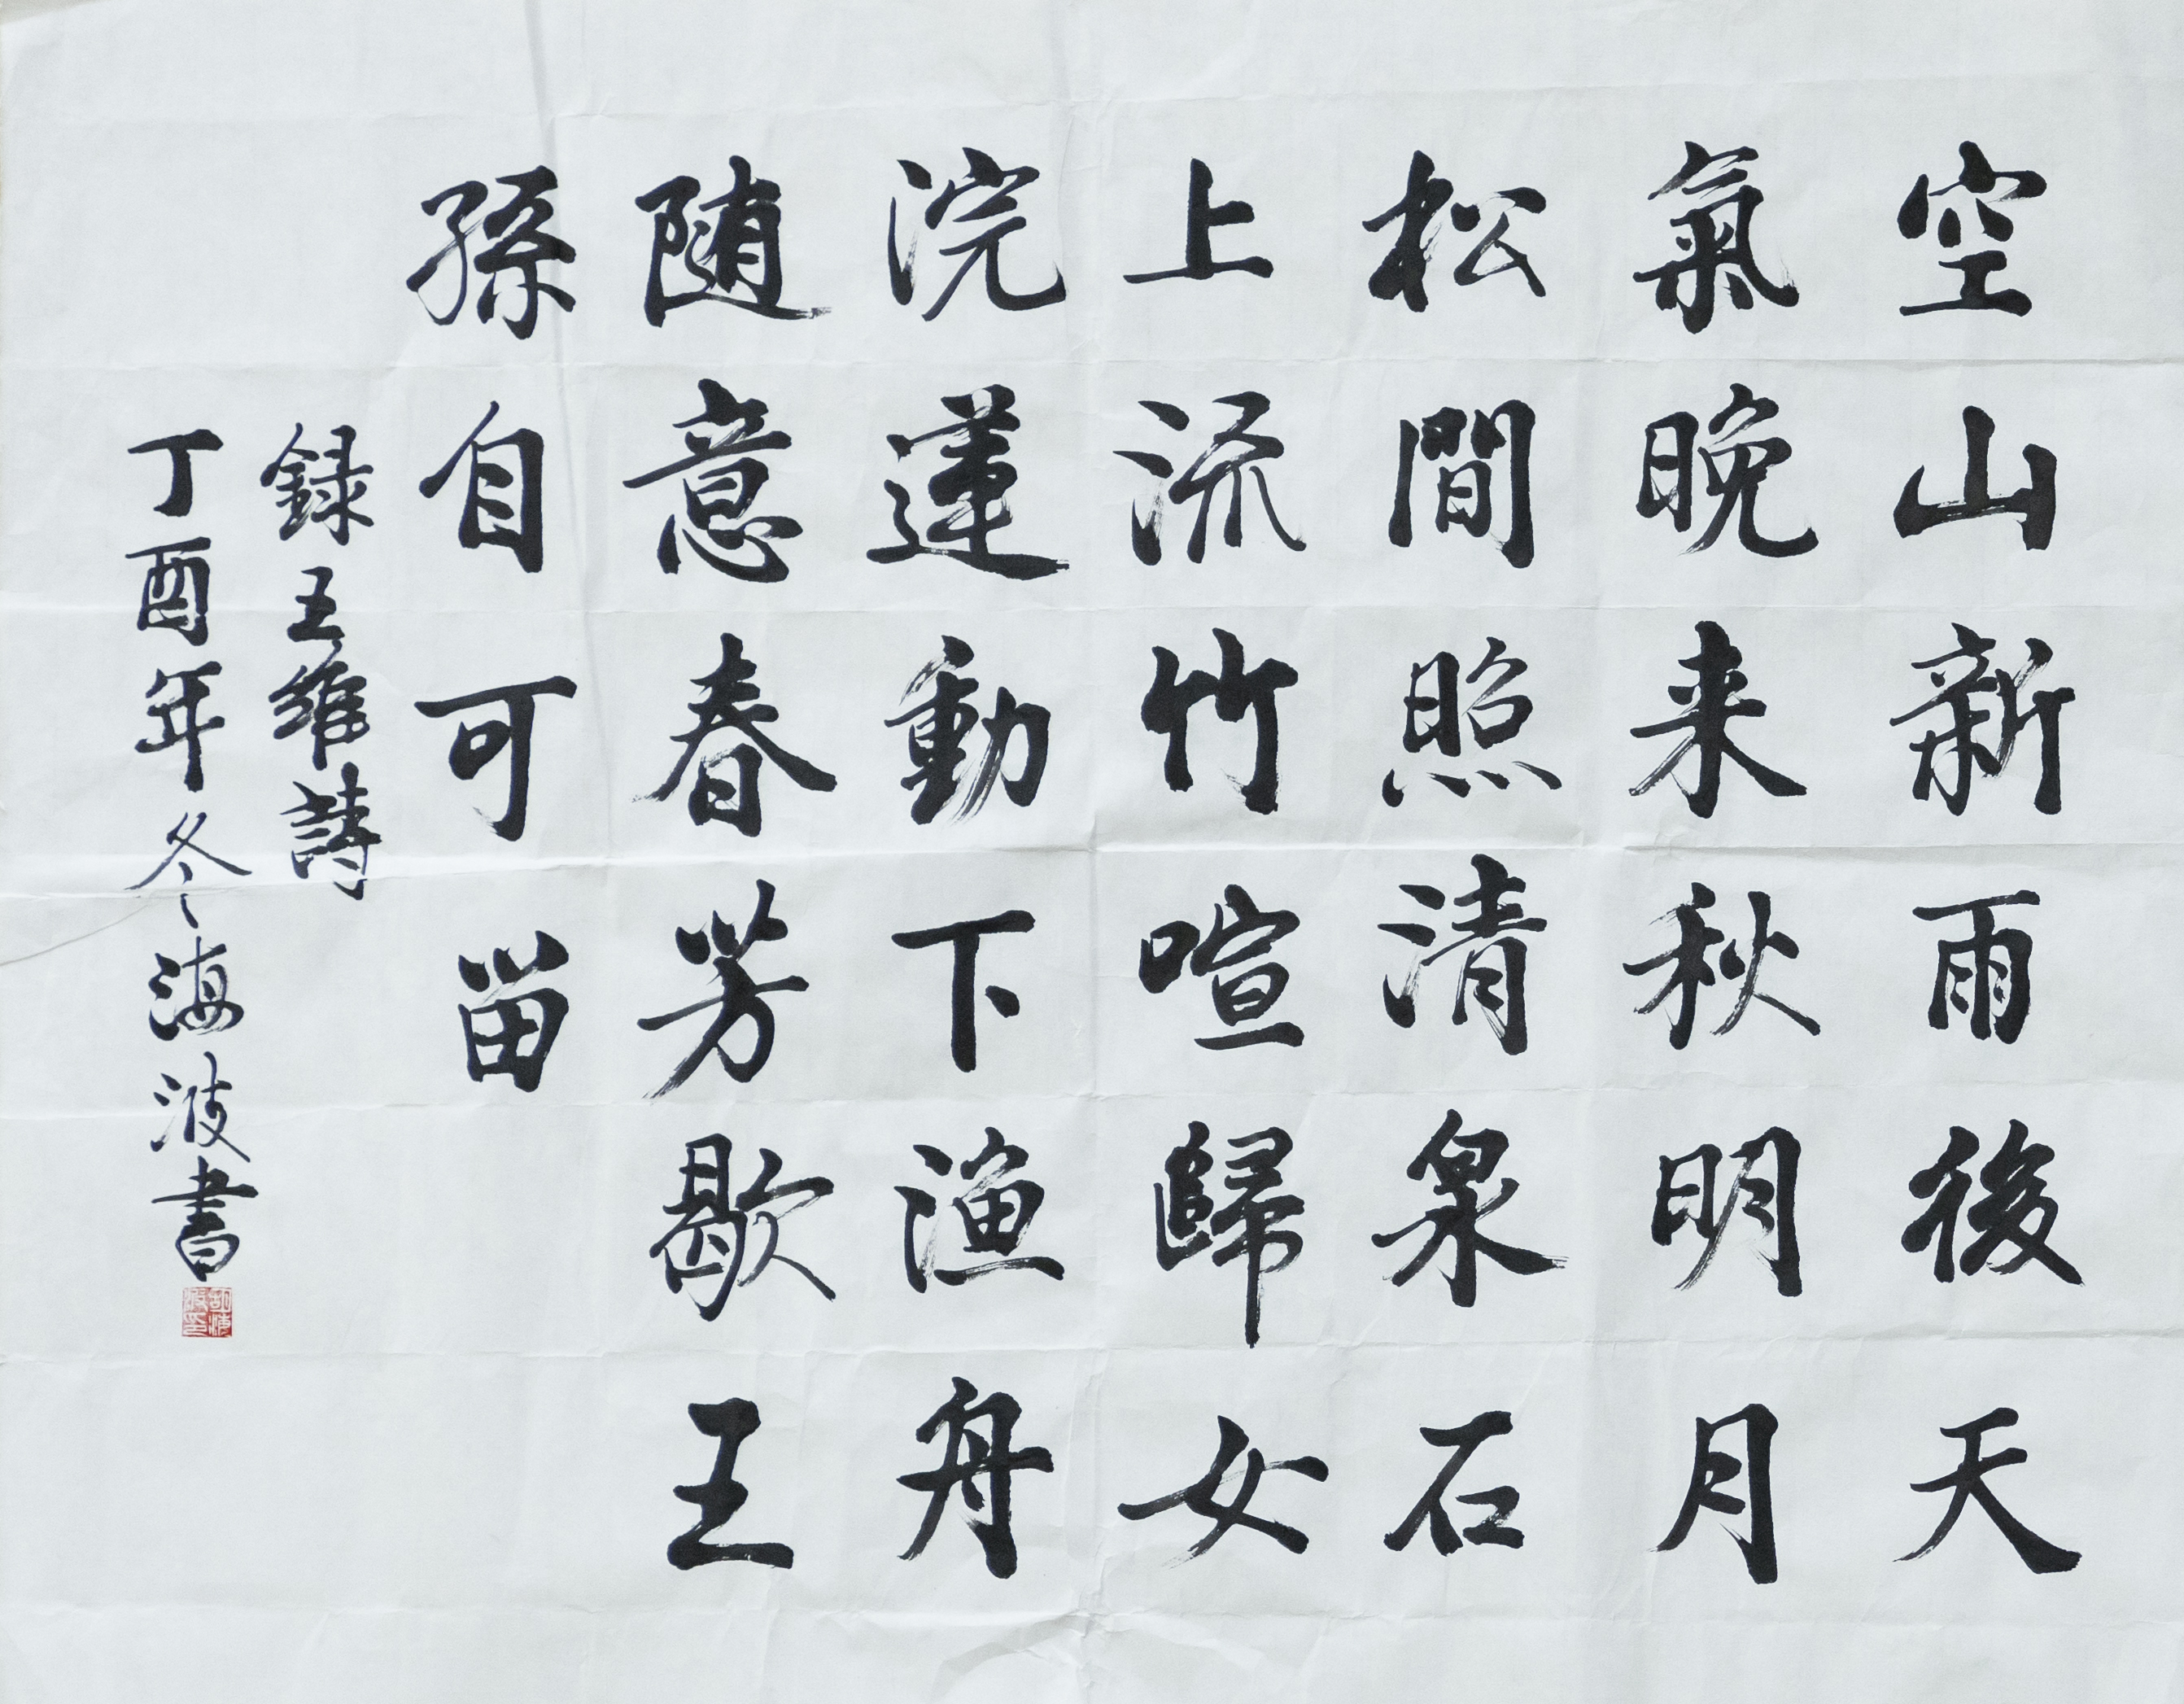 空山新雨後天
氣晚来秋明月
松間照清泉石
上流竹喧歸女
浣蓮動下渔舟
随意春芳歇王
孫自可留
録王維詩
丁酉年冬海波書